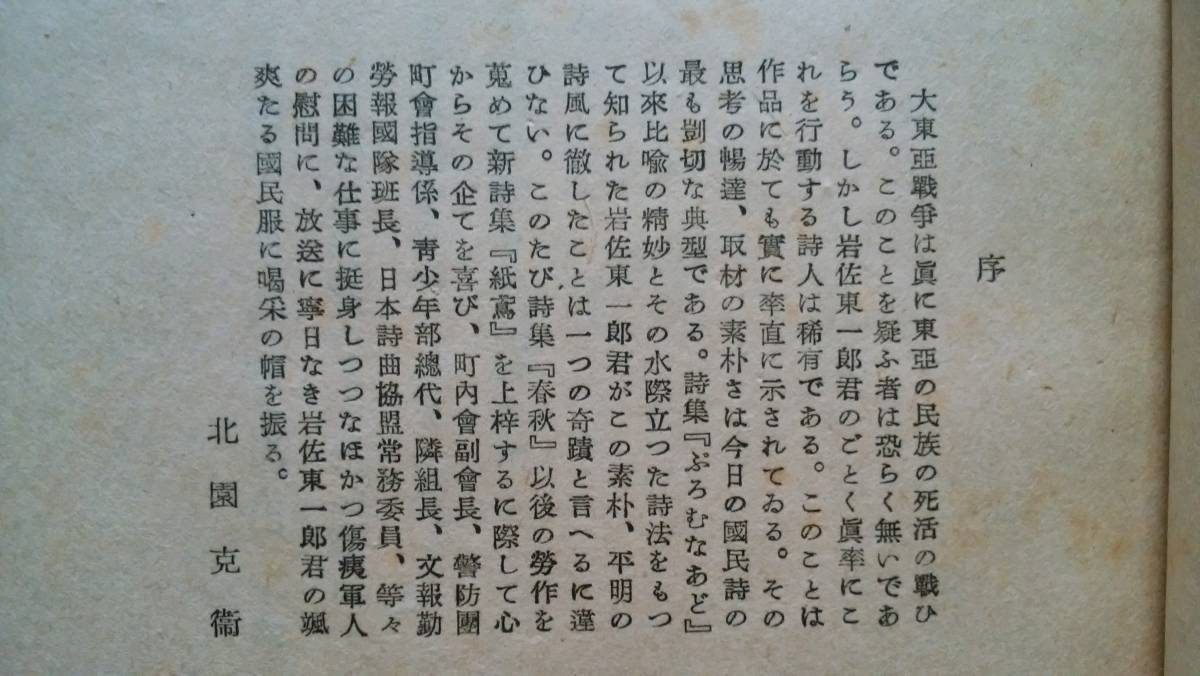 序
大東亞戰爭は眞に東亞の民族の死活の戰ひ
である。このことを疑ふ者は恐らく無いであ
らう。しかし岩佐東一郎君のごとく眞率にこ
れを行動する詩人は稀有である。このことは
作品に於ても實に率直に示されてゐる。その
思考の暢達、取材の素朴さは今日の國民詩の
最も剴切な典型である。詩集『ぷろむなあど』
以來比喩の精妙とその水際立つた詩法をもつ
て知られた岩佐東一郎君がこの素朴、平明の
詩風に徹したことは一つの奇蹟と言へるに違
ひない。このたび詩集『春秋』以後の勞作を
蒐めて新詩集『紙鳶』を上梓するに際して心
からその企てを喜び、町內會副會長、警防團
町會指導係、靑少年部總代、隣組長、文報勤
勞報國隊班長、日本詩曲協盟常務委員、等々
の困難な仕事に挺身しつつなほかつ傷痍軍人
の慰問に、放送に寧日なき岩佐東一郎君の颯
爽たる國民服に喝采の帽を振る。
北園克衞